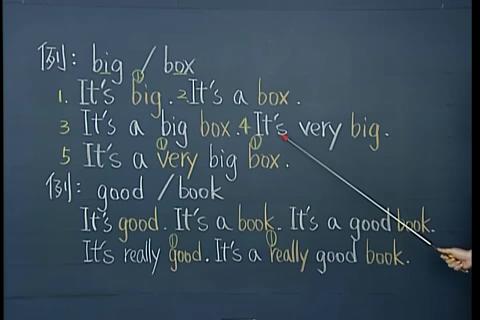 例: big / box
1. It's big. 2 It's a box.
3 It's a big box. 4 It's very big.
5 It's a very big box.
例: good / book
It's good. It's a book. It's a good book.
It's really good. It's a really good book.